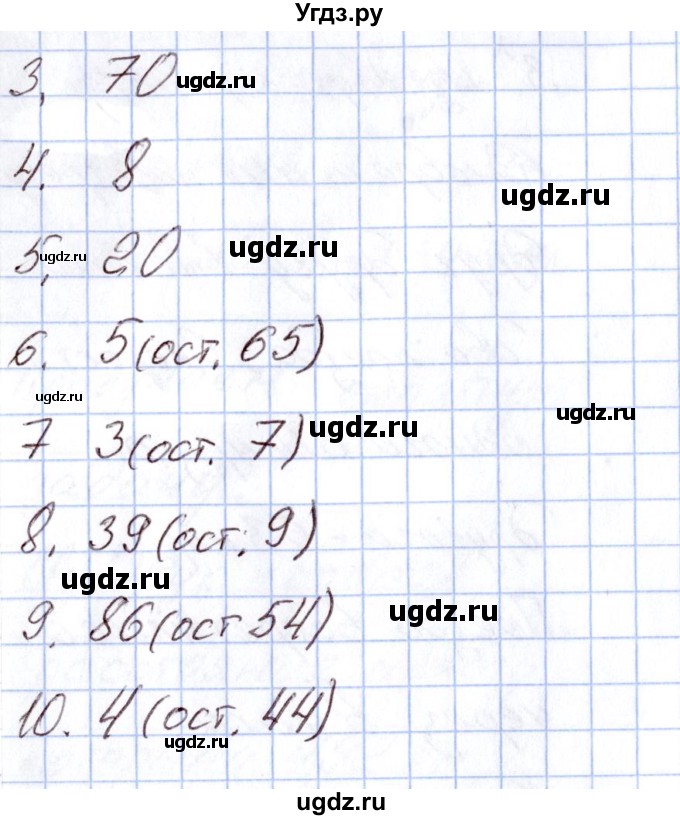 Угдз.ру
3, 70 ugdz.ru
4. 8
ugdz.ru
5, 20 ugdz.ru
ugdz.ru
6. 5 (ост. 65)
ugdz.ru
ugdz.ru
7 3 (ост. 7) ugdz.ru
8. 39 (ост. 9)
ugdz.ru
9. 86 (ост 54) ugdz.ru
10. 4 (ост. 44)
ugdz.ru
ugdz.ru